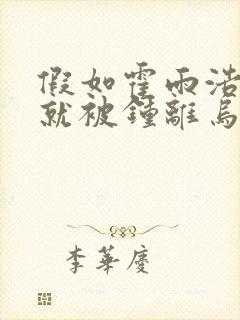 假如霍雨浩
就被鍾離烏
李華慶